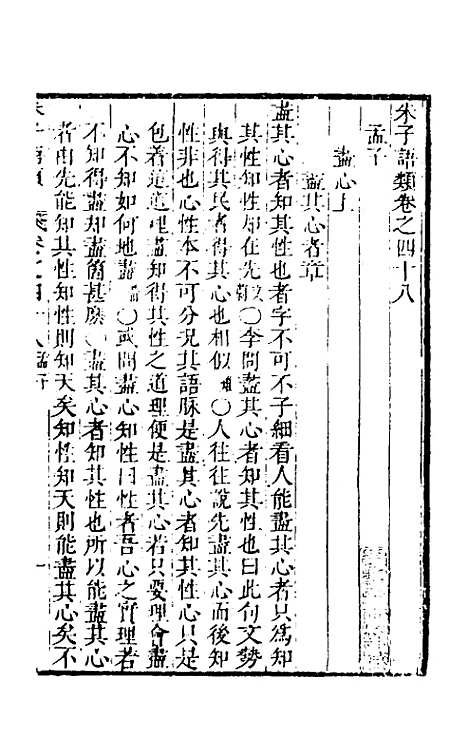 朱子語類卷之四十八
孟子
盡心上
盡其心者章
盡其心者知其性也者字不可不子細看人能盡其心者只爲知
其性知性却在先 〇李問盡其心者知其性也曰此句文勢
與得其民者得其心也相似 〇人往往說先盡其心而後知
性非也心性本不可分况其語脉是盡其心者知其性心只是
包著這道理盡知得其性之道理便是盡其心若只要理會盡
心不知如何地盡 〇或問盡心知性曰性者吾心之實理若
不知得盡却盡箇甚麽 〇盡其心者知其性也所以能盡其心
者由先能知其性知性則知天矣知性知天則能盡其心矣不
朱子語類 卷之四十八 孟子 一